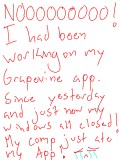 NOOOOOOOOO!
I had been
working on my
Grapevine app.
Since yesterday
and just now my
windows all closed!
My comp just ate
my App!